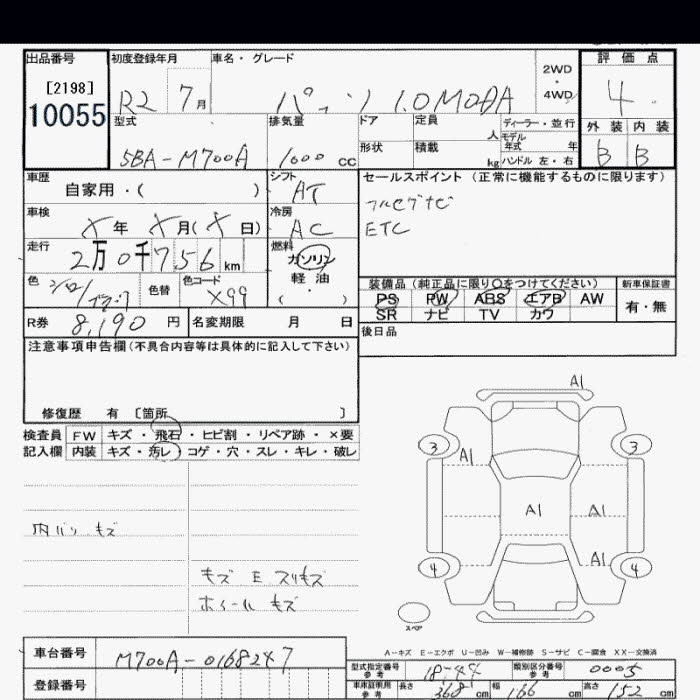 出品番号 初度登録年月 車名・グレード 評価点
[2198]
10055
R2 7月 パッソ 1.0MODA 2WD・4WD 4
型式 排気量 ドア 定員 人 ディーラー・並行 外装 内装
モデル年式 年
5BA-M700A 1000 cc 形状 積載 kg ハンドル 左・右 B B
車歴 シフト セールスポイント (正常に機能するものに限ります)
自家用・( ) AT フルセグナビ
車検 冷房 ETC
X年 X月(X日) AC
走行 燃料
2万0千756km ガソリン
色 色替 色コード 軽油 装備品 (純正品に限り○をつけてください) 新車保証書
X99 ( ・ ) PS PW ABS エアB AW 有・無
SR ナビ TV カワ
R券 8,190円 名変期限 月 日 後日品
注意事項申告欄(不具合内容等は具体的に記入して下さい)
A1
修復歴 有 〔箇所 〕
検査員 FW キズ・飛石・ヒビ割・リペア跡・×要
記入欄 内装 キズ・汚レ・コゲ・穴・スレ・キレ・破レ
3 3
A1
A1 A1
内バリ キズ
A1
4 4
キズ E スリキズ
ホイール キズ
スペア
A-キズ E-エクボ U-凹み W-補修跡 S-サビ C-腐食 XX-交換済
車台番号 M700A-0168247
型式指定番号 参考 18744 類別区分番号 参考 0005
登録番号
車庫証明用 参考 長さ 368cm 幅 166cm 高さ 152cm